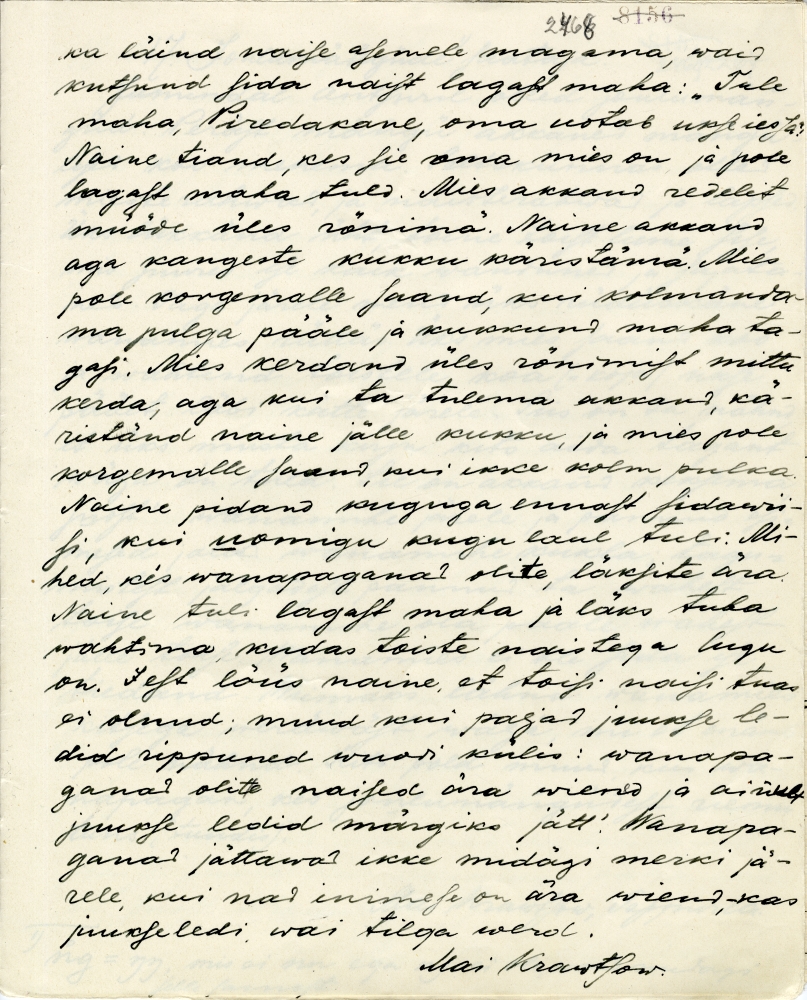 2468 8156
ka läind naise asemele magama, waid
kutsund sida naist lagast maha: „Tule
maha, Piredakane, oma uotab ukse ies
Naine tiand, kes sie oma mies on, ja pole
lagast maha tuld. Mies akkand redelit
müöde üles rönimä. Naine akkand
aga kangeste kukku käristämä. Mies
pole korgemalle saand, kui kolmanda-
ma pulga pääle ja kukkund maha ta-
gasi. Mies kerdand üles rönimist mittu
kerda, aga kui ta tulema akkand, kä-
riständ naine jälle kukku, ja mies pole
korgemalle saand, kui ikke kolm pulka.
Naine pidand kuguga ennast sidawii-
si, kui uomigu kugu laul tuli. Mi-
hed, kes wanapaganad olite, läksite ära.
Naine tuli lagast maha ja läks tuba
wahtima, kudas toiste naistega lugu
on. Sest löüs naine, et toisi naisi tuas
ei olnud; muud kui paljad juukse le-
did rippuned wuodi külis: wanapa-
ganad olite naised ära wiend ja
juukse ledid märgiks jätt'. Wanapa-
ganad jättawad ikke midägi merki jä-
rele, kui nad inimese on ära wiend, kas
juukseledi, wai tilga werd.
Mai Krawtsow.